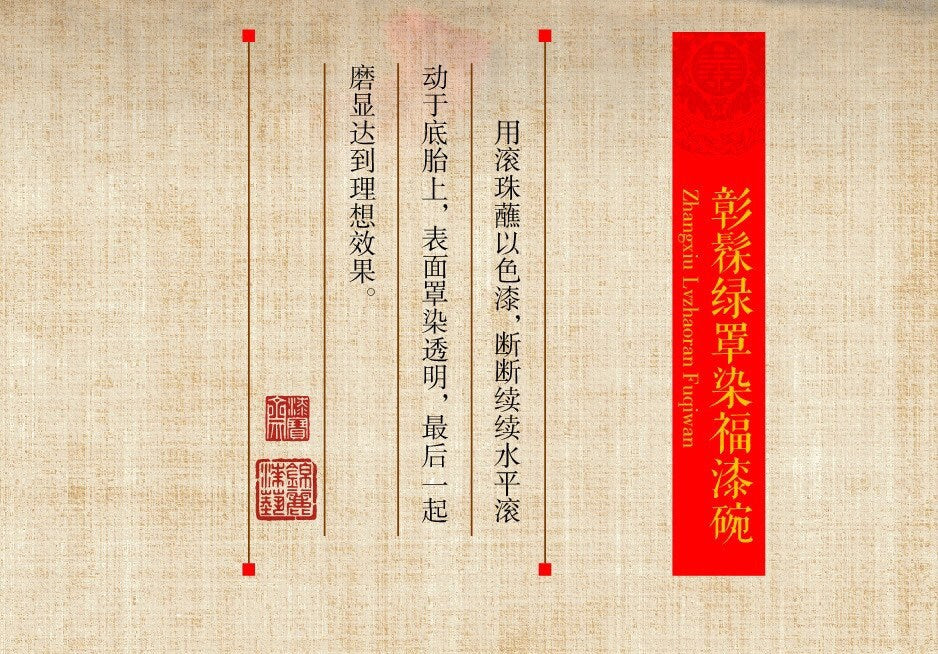 彰髹绿罩染福漆碗
Zhangxiu Lvzhaoran Fuqiwan
用滚珠蘸以色漆，断断续续水平滚
动于底胎上，表面罩染透明，最后一起
磨显达到理想效果。
漆寶
齋
錦麗
沫藝